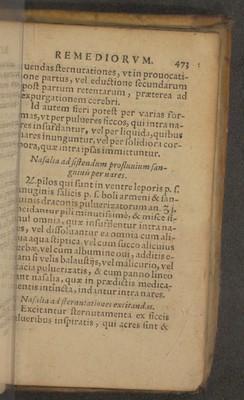 REMEDIORVM. 473
uendas sternutationes, vt in prouocati-
one partus, vel eductione secundarum
post partum retentarum, præterea ad
expurgationem cerebri.
Id autem fieri potest per varias for-
mas, vt per pulueres siccos, qui intra na-
res insufflantur, vel per liquida, quibus
nares inunguntur, vel per solidiora cor-
pora, quæ intra ipsas immittuntur.
Nasalia ad sistendum profluuium san-
guinis per nares.
pilos qui sunt in ventre leporis p. s.
salicis p. s. boli armeni & san-
guinis draconis puluerizatorum an.
incidantur pili minutissimè, & misce si-
mul omnia, quæ insufflentur intra na-
res, vel dissoluantur ea omnia cum ali-
qua aqua stiptica. vel cum succo alicuius
herbæ, vel cum albumine oui, additis e-
tiam si velis balaustijs, vel malicurio, vel
acacia puluerizatis, & cum panno lineo
fiant nasalia, quæ in prædictis medica-
mentis intincta, indantur intra nares.
Nasalia ad sternutationes excitandas.
Excitantur sternutamenta ex siccis
pulueribus inspiratis, qui acres sint &